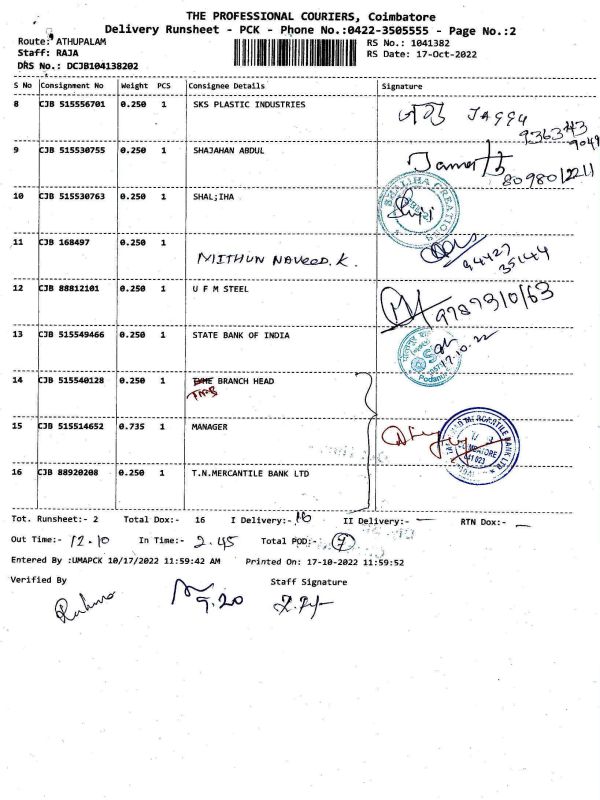 THE PROFESSIONAL COURIERS, Coimbatore
Delivery Runsheet - PCK - Phone No.:0422-3505555 - Page No.:2
Route: ATHUPALAM RS No.: 1041382
Staff: RAJA RS Date: 17-Oct-2022
DRS No.: DCJB104138202
S No Consignment No Weight PCS Consignee Details Signature
8 CJB 515556701 0.250 1 SKS PLASTIC INDUSTRIES JAGGU
9 CJB 515530755 0.250 1 SHAJAHAN ABDUL
10 CJB 515530763 0.250 1 SHAL;IHA SHALIHA CREATIONS
11 CJB 168497 0.250 1 MITHUN NAVEED.K. 94427 35144
12 CJB 88812101 0.250 1 U F M STEEL
13 CJB 515549466 0.250 1 STATE BANK OF INDIA 17.10.22
14 CJB 515540128 0.250 1 BRANCH HEAD
TMB
15 CJB 515514652 0.735 1 MANAGER
16 CJB 88920208 0.250 1 T.N.MERCANTILE BANK LTD
Tot. Runsheet:- 2 Total Dox:- 16 I Delivery:- 16 II Delivery:- — RTN Dox:- —
Out Time:- 12.10 In Time:- 2.45 Total POD:- 9
Entered By :UMAPCK 10/17/2022 11:59:42 AM Printed On: 17-10-2022 11:59:52
Verified By Staff Signature
9.20